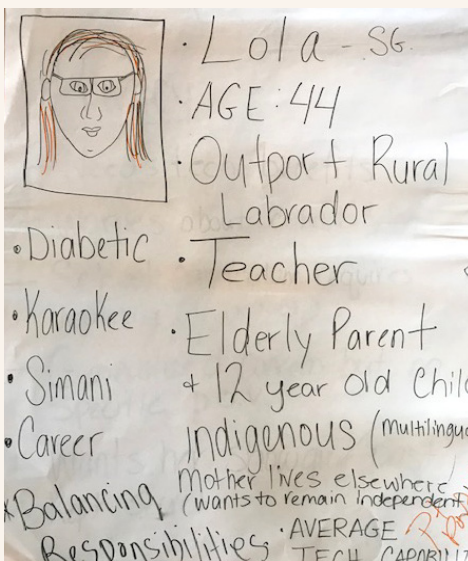 • Lola - SG.
• AGE: 44
• Outport Rural
Labrador
• Teacher
• Elderly Parent
+ 12 year old Child
Indigenous (multilingual
Mother lives elsewhere
(wants to remain independent)
• AVERAGE
TECH CAPABILIT
• Diabetic
• Karaokee
• Simani
• Career
* Balancing
Responsibilities